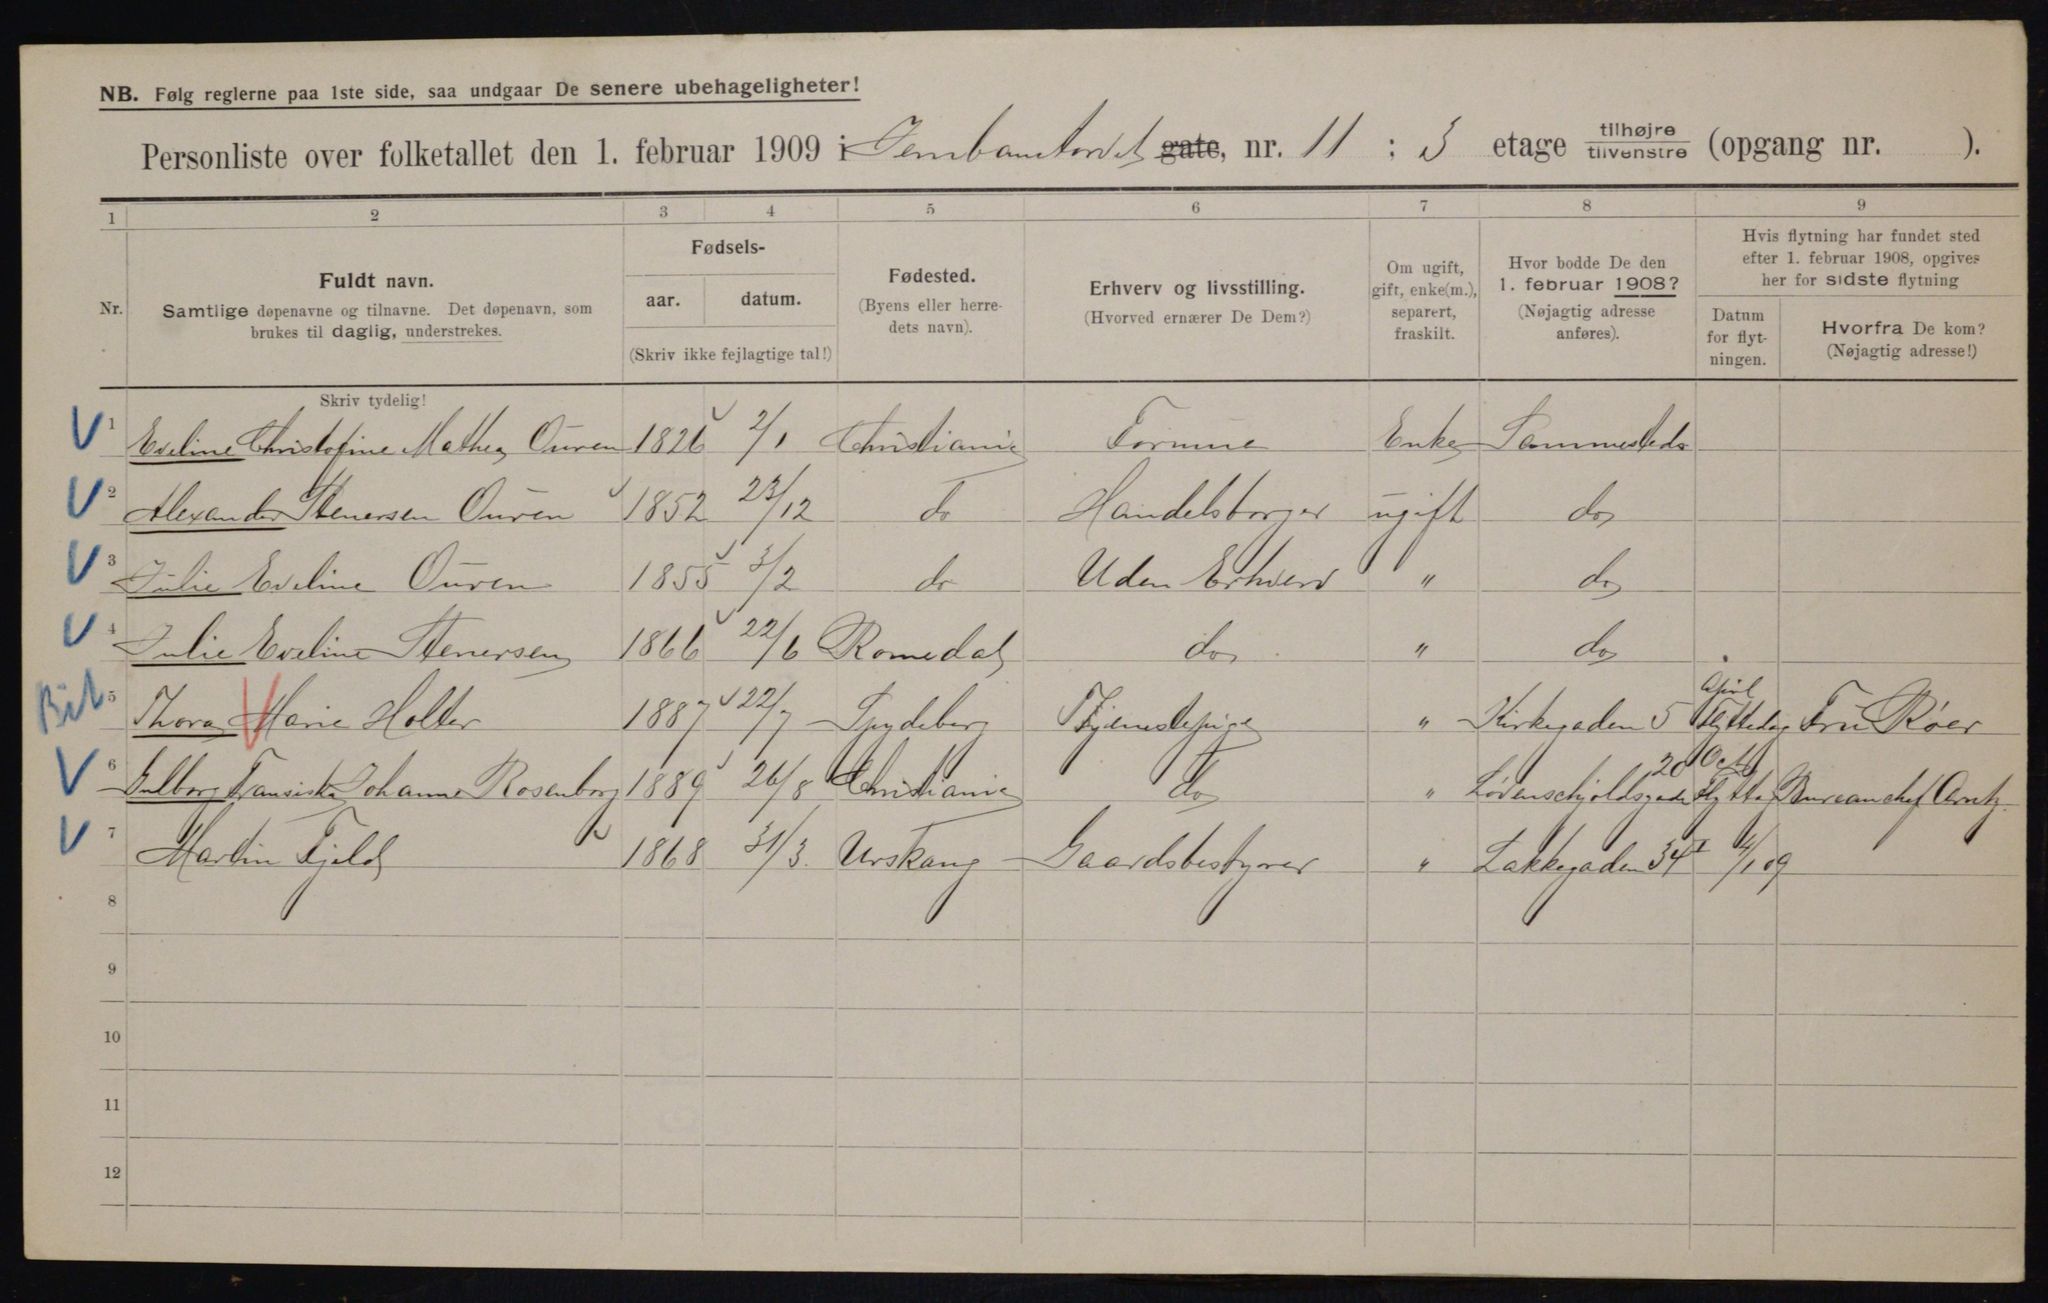 NB. Følg reglerne paa 1ste side, saa undgaar De senere ubehageligheter!
Personliste over folketallet den 1. februar 1909 i Jernbanetorvet gate, nr. 11 ; 3 etage tilhøjre tilvenstre (opgang nr. ).
1 2 3 4 5 6 7 8 9
Nr. Fuldt navn. Samtlige døpenavne og tilnavne. Det døpenavn, som brukes til daglig, understrekes.
Fødsels- aar. datum. (Skriv ikke fejlagtige tal!)
Fødested. (Byens eller herredets navn).
Erhverv og livsstilling. (Hvorved ernærer De Dem?)
Om ugift, gift, enke(m.), separert, fraskilt.
Hvor bodde De den 1. februar 1908? (Nøjagtig adresse anføres).
Hvis flytning har fundet sted efter 1. februar 1908, opgives her for sidste flytning
Datum for flytningen.
Hvorfra De kom? (Nøjagtig adresse!)
Skriv tydelig!
V 1 Eveline Christofine Mathea Ouren 1826 2/1 Christiania Formue Enke Sammesteds
V 2 Alexander Stenersen Ouren 1852 23/12 do Handelsborger ugift do
V 3 Julie Eveline Ouren 1855 3/2 do Uden Erhverv " do
V 4 Julie Eveline Stenersen 1866 22/6 Romedal do " do
Bib 5 Thora Marie Holter 1887 22/7 Spydeberg Tjenestepige " Kirkegaden 5 April Flyttedag Fru Røer
V 6 Fransiska Johanne Rosenborg 1889 26/8 Christiania do " Løvenschjoldsgade 20 Oct Flyttedag Bureauchef Arntz
V 7 Martin Fjeld 1868 31/3. Urskaug Gaardsbestyrer " Lakkegaden 34 I 4/1 09
8
9
10
11
12